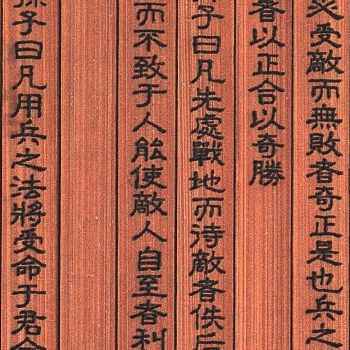 必受敵而無敗者奇正是也兵之
者以正合以奇勝
孫子曰凡先處戰地而待敵者佚后
而不致于人能使敵人自至者利
孫子曰凡用兵之法將受命于君合